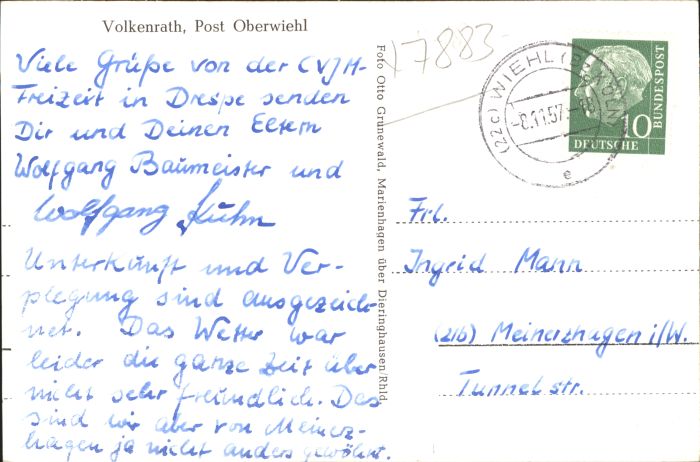 Volkenrath, Post Oberwiehl
Viele Grüße von der CVJM-
Freizeit in Drespe senden
Dir und Deinen Eltern
Wolfgang Baumeister und
Wolfgang Kuhn
Unterkunft und Ver-
pflegung sind ausgezeich-
net. Das Wetter war
leider die ganze Zeit über
nicht sehr freundlich. Das
sind wir aber von Meinerz-
hagen ja nicht anders gewöhnt.
Foto Otto Grünewald, Marienhagen über Dieringhausen/Rhld.
17883
(22c) WIEHL (BZ KÖLN)
-8.11.57.
e
10
DEUTSCHE
BUNDESPOST
Frl.
Ingrid Mann
(21b) Meinerzhagen i/W.
Tunnelstr.